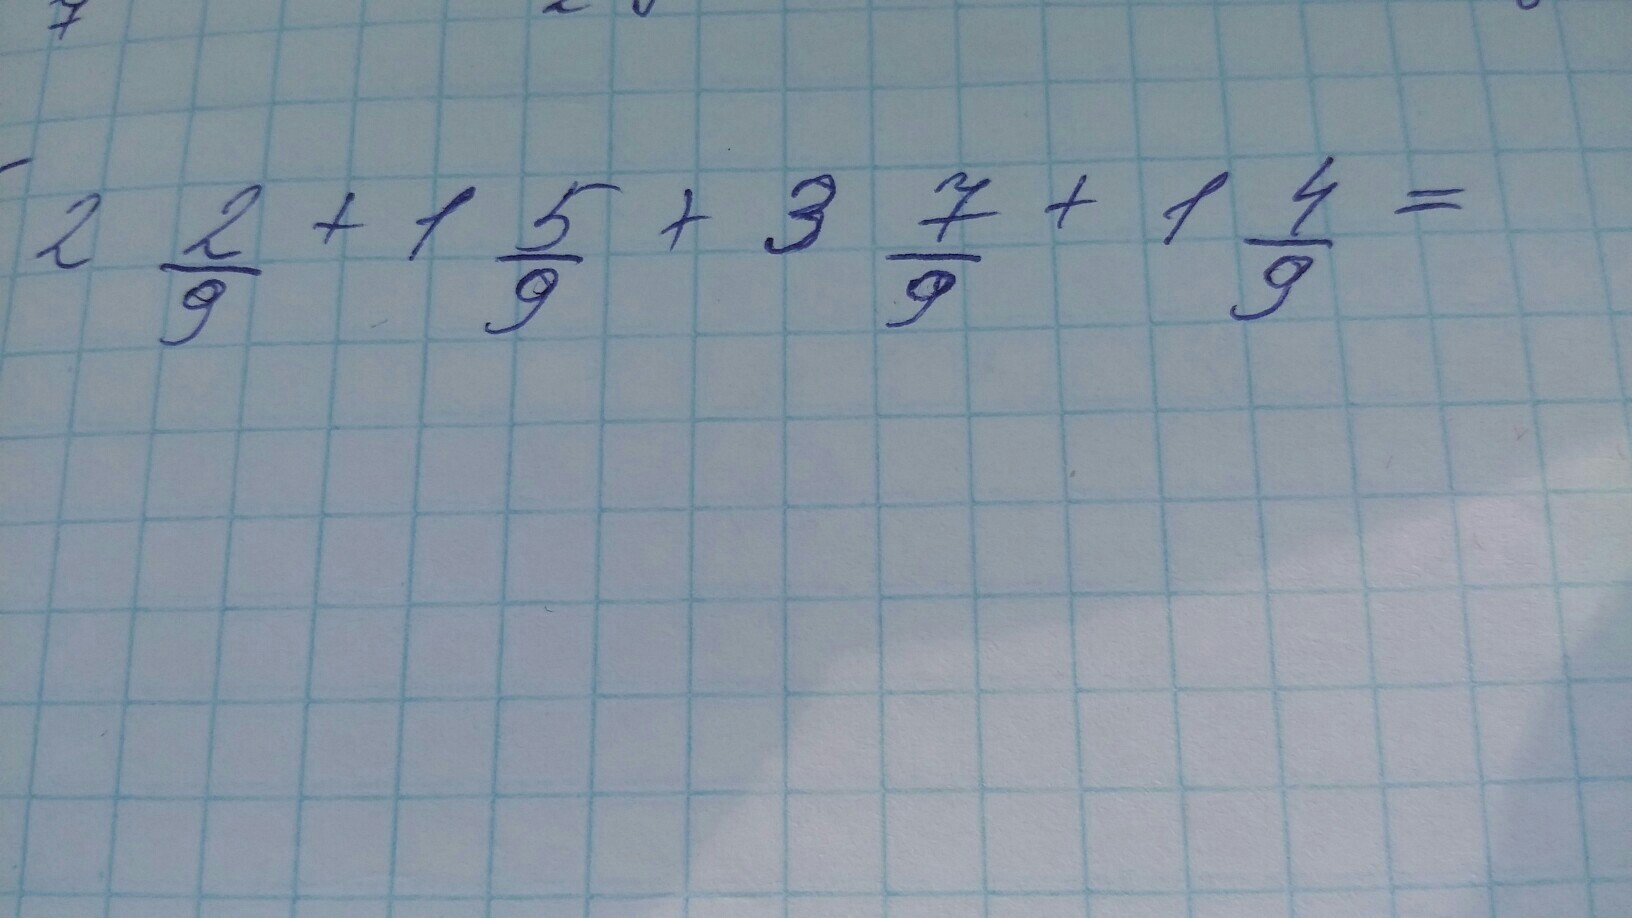 2 2/9 + 1 5/9 + 3 7/9 + 1 4/9 =